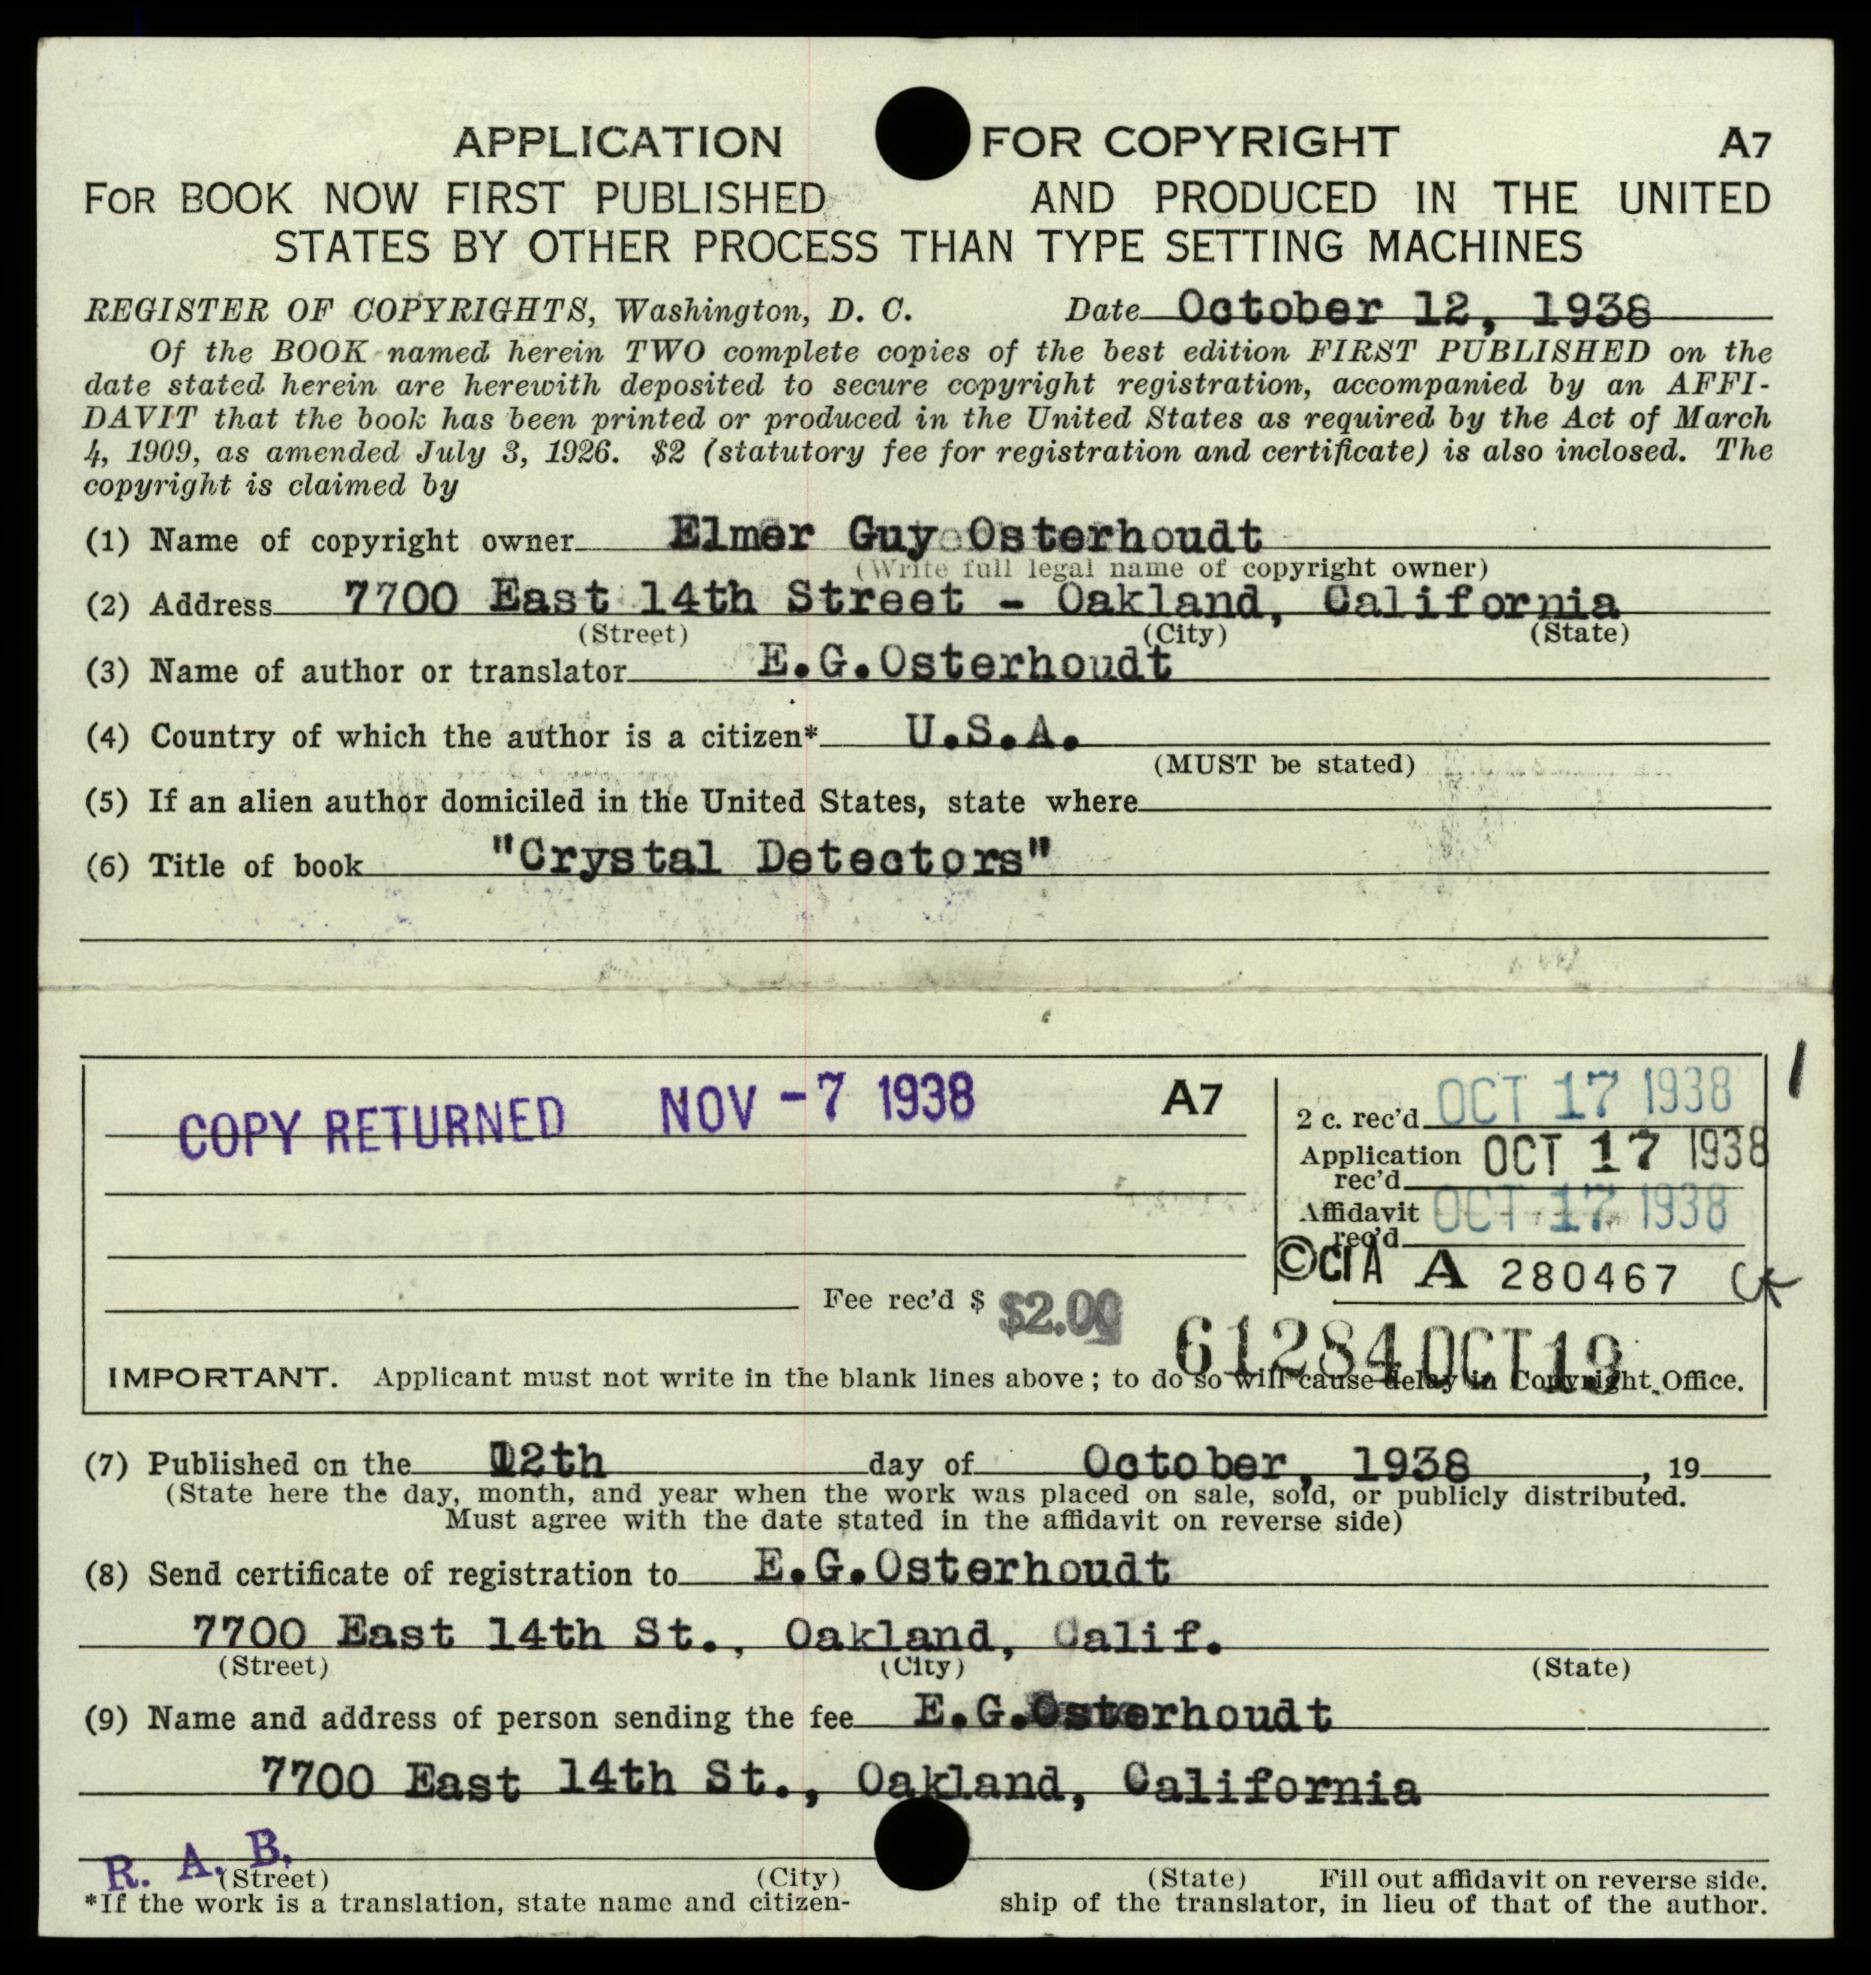 APPLICATION FOR COPYRIGHT A7
FOR BOOK NOW FIRST PUBLISHED AND PRODUCED IN THE UNITED
STATES BY OTHER PROCESS THAN TYPE SETTING MACHINES
REGISTER OF COPYRIGHTS, Washington, D. C. Date October 12, 1938
Of the BOOK named herein TWO complete copies of the best edition FIRST PUBLISHED on the
date stated herein are herewith deposited to secure copyright registration, accompanied by an AFFI-
DAVIT that the book has been printed or produced in the United States as required by the Act of March
4, 1909, as amended July 3, 1926. $2 (statutory fee for registration and certificate) is also inclosed. The
copyright is claimed by
(1) Name of copyright owner Elmer Guy Osterhoudt
(Write full legal name of copyright owner)
(2) Address 7700 East 14th Street - Oakland, California
(Street) (City) (State)
(3) Name of author or translator E.G.Osterhoudt
(4) Country of which the author is a citizen* U.S.A.
(MUST be stated)
(5) If an alien author domiciled in the United States, state where
(6) Title of book "Crystal Detectors"
COPY RETURNED NOV -7 1938 A7
2 c. rec'd OCT 17 1938
Application rec'd OCT 17 1938
Affidavit rec'd OCT 17 1938
©CIA A 280467
Fee rec'd $ $2.00
61284 OCT 19
IMPORTANT. Applicant must not write in the blank lines above; to do so will cause delay in Copyright Office.
(7) Published on the 12th day of October, 1938, 19
(State here the day, month, and year when the work was placed on sale, sold, or publicly distributed.
Must agree with the date stated in the affidavit on reverse side)
(8) Send certificate of registration to E.G.Osterhoudt
7700 East 14th St., Oakland, Calif.
(Street) (City) (State)
(9) Name and address of person sending the fee E.G.Osterhoudt
7700 East 14th St., Oakland, California
R. A. B.
(Street) (City) (State) Fill out affidavit on reverse side.
*If the work is a translation, state name and citizen- ship of the translator, in lieu of that of the author.